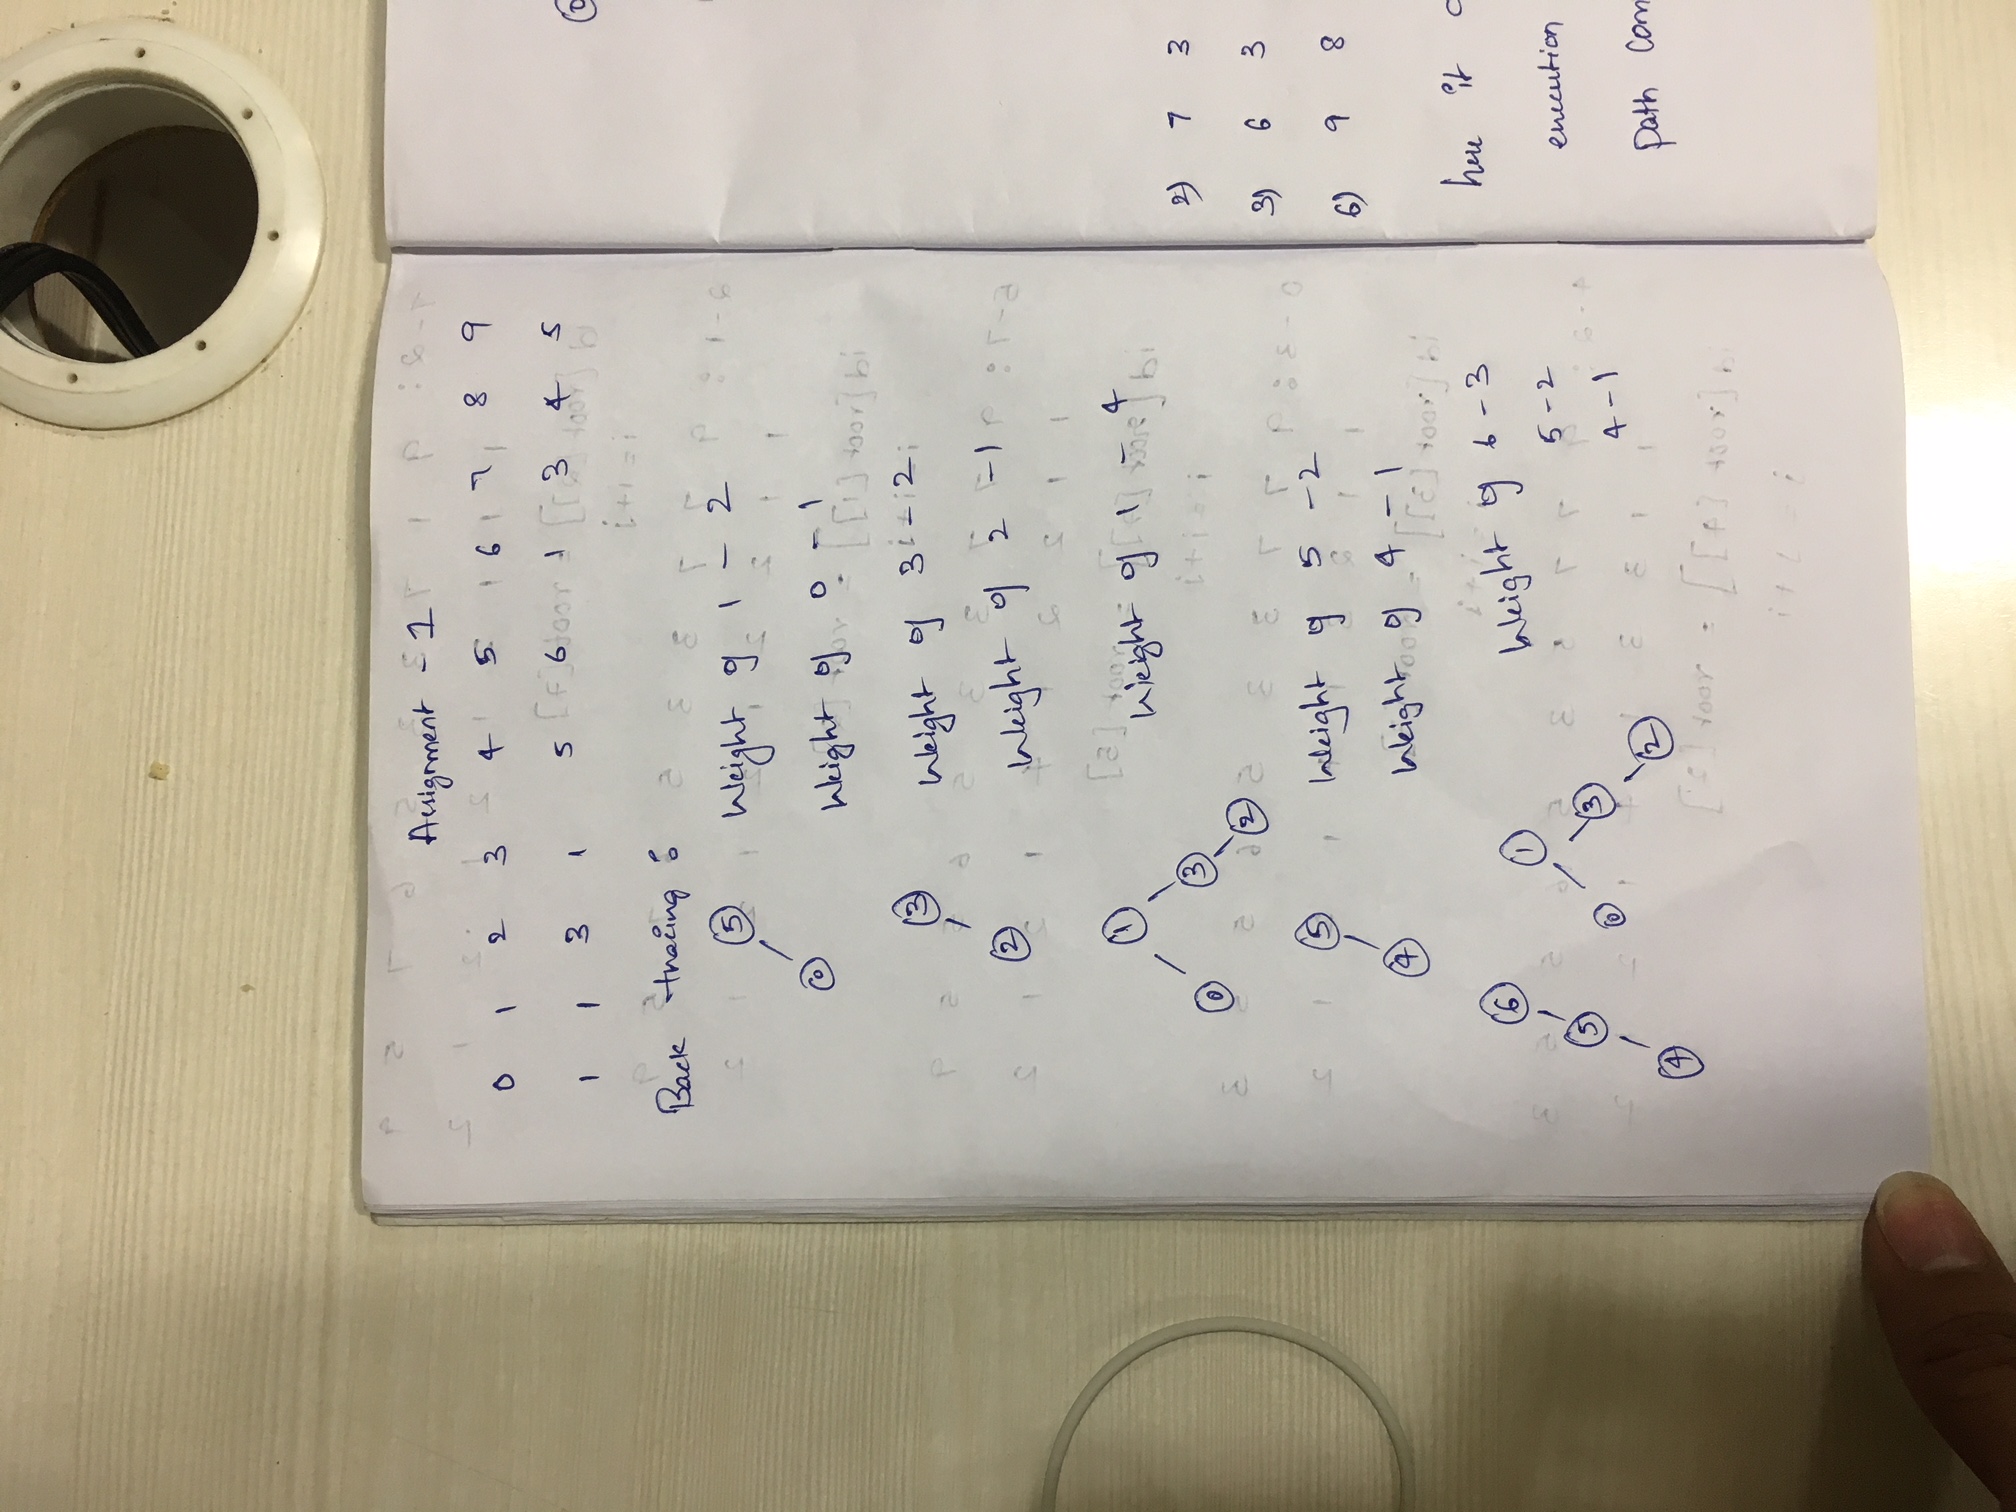 Assignment - 1
0 1 2 3 4 5 6 7 8 9
1 1 3 1 5 6 1 3 4 5
Back tracing :
5 Weight of 1 - 2
0 Weight of 0 - 1
3 Weight of 3 - 2
2 Weight of 2 - 1
1 Weight of 1 - 4
0 3
2
5 Weight of 5 - 2
4 Weight of 4 - 1
6 1 Weight of 6 - 3
5 0 3 5 - 2
4 2 4 - 1
2) 7 3
3) 6 3
6) 9 8
here it
execution
Path